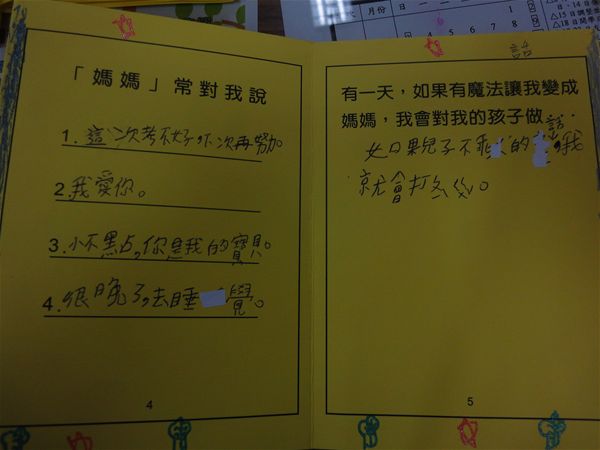 「媽媽」常對我說
1. 這次考不好,下次再努力。
2. 我愛你。
3. 小不點,你是我的寶貝。
4. 很晚了,去睡覺。
4
話
有一天,如果有魔法讓我變成
媽媽,我會對我的孩子做
話.
如果兒子不乖的 我
就會打
5
月份